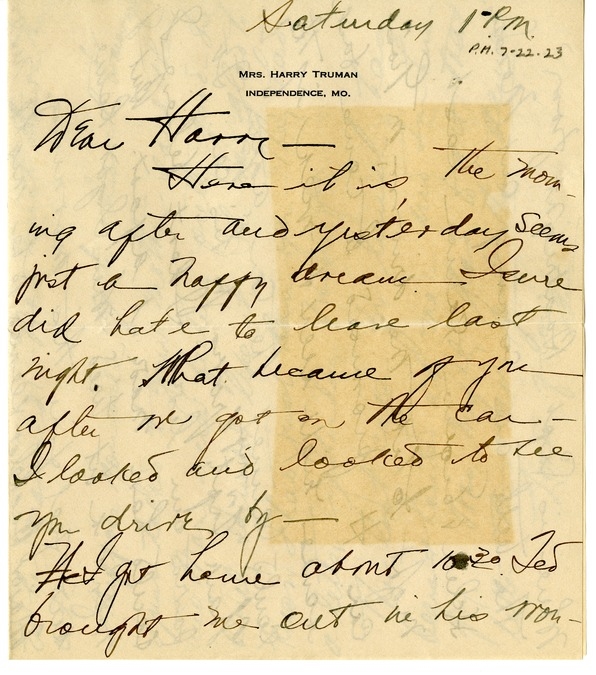 Saturday 1 P.M.
P.M. 7-22-23
MRS. HARRY TRUMAN
INDEPENDENCE, MO.
Dear Harry —
Here it is the morn-
ing after and yesterday seems
just a happy dream. I sure
did hate to leave last
night. What became of you
after we got on the car —
I looked and looked to see
you drive by —
got home about 10 30. Ted
brought me out in his won-